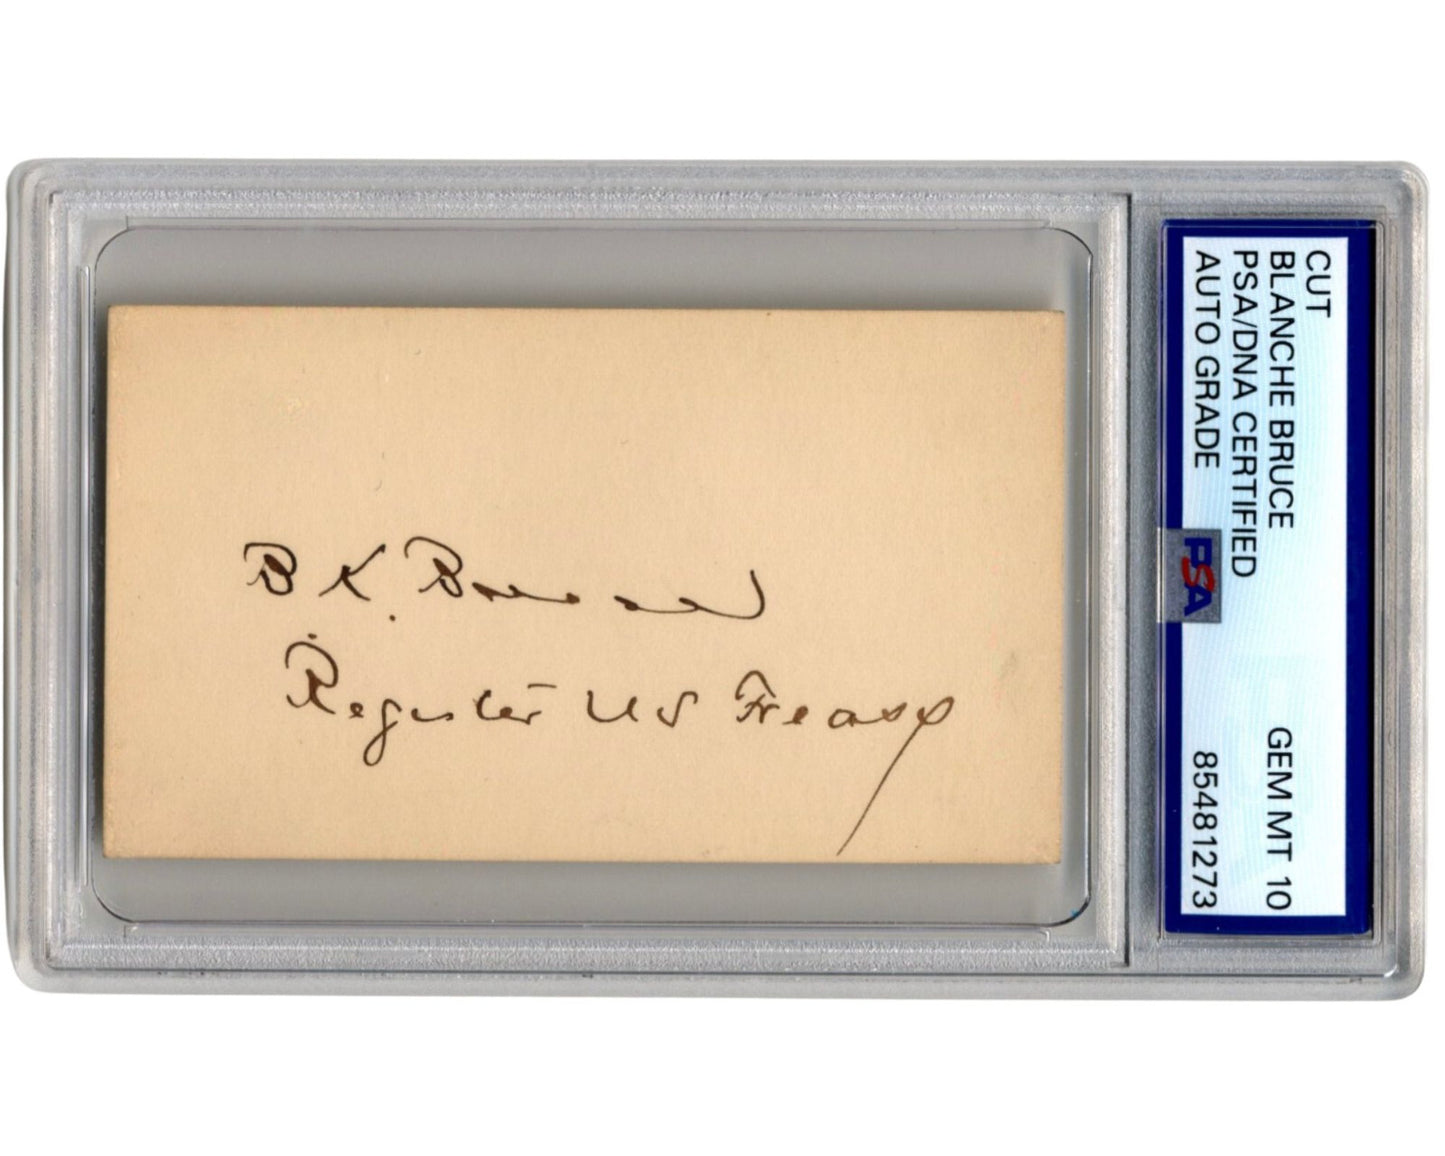 B K. Bruce
Register US Treasy
CUT
BLANCHE BRUCE
PSA/DNA CERTIFIED
AUTO GRADE
GEM MT 10
85481273
PSA